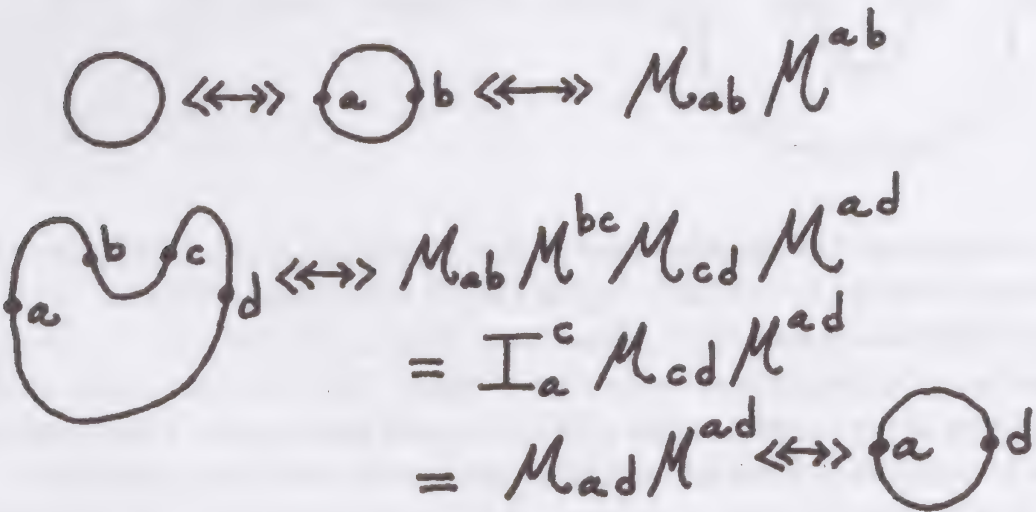 a b M_{ab} M^{ab}
a b c d M_{ab} M^{bc} M_{cd} M^{ad}
= I_a^c M_{cd} M^{ad}
= M_{ad} M^{ad} a d